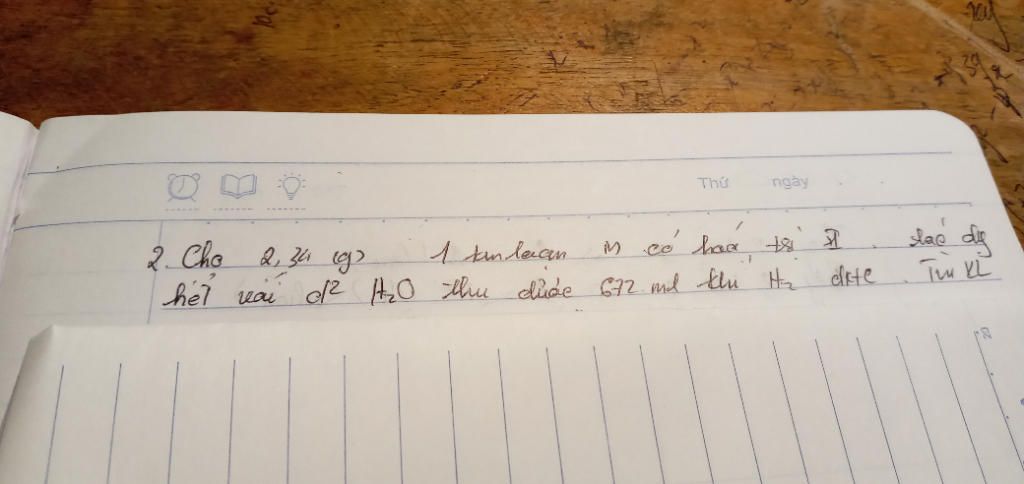 Thứ ngày
2. Cho 2,34 (g) 1 kim loại M có hoá trị I. tác dg
hết với d² H₂O thu được 672 ml khí H₂ đktc. Tìm KL